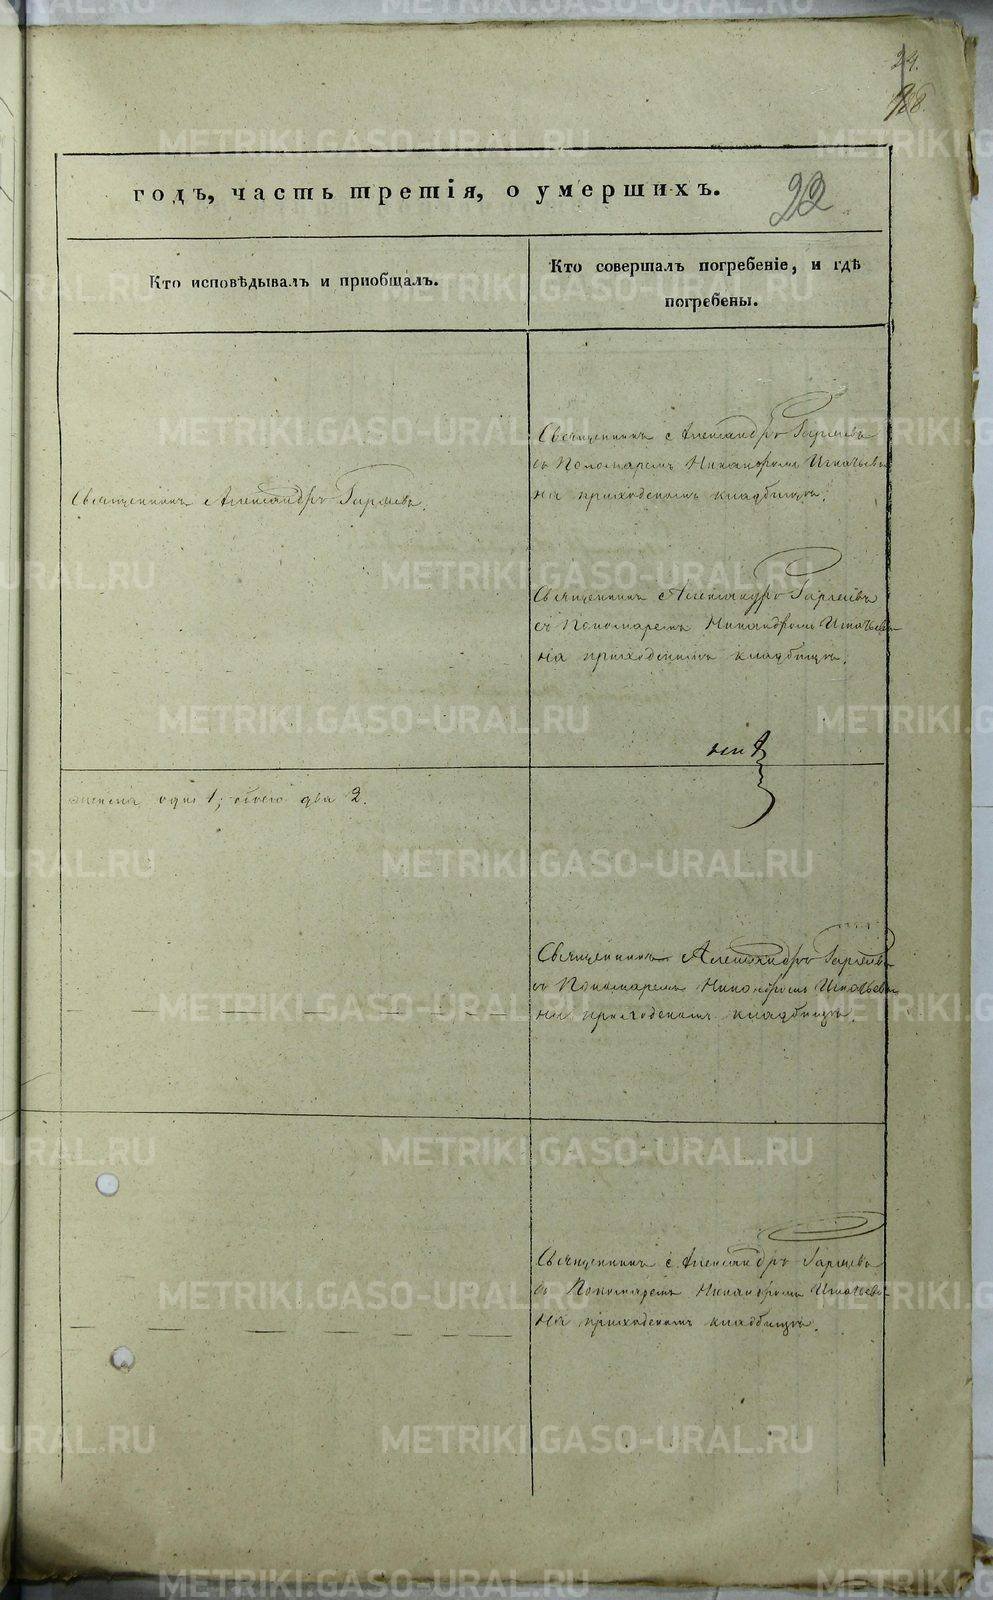 24.
годъ, часть третія, о умершихъ.
22
Кто исповѣдывалъ и пріобщалъ.
Кто совершалъ погребеніе, и гдѣ
погребены.
Священникъ Александръ
Священникъ Александръ
съ Пономаремъ Никандромъ Игнатьевы
на приходскомъ кладбищѣ.
Священникъ Александръ
съ Пономаремъ Никандромъ Игнатьевы
на приходскомъ кладбищѣ.
женска одна 1, обоего два 2.
Священникъ Александръ
съ Пономаремъ Никандромъ Игнатьевы
на приходскомъ кладбищѣ.
Священникъ Александръ
съ Пономаремъ Никандромъ Игнатьевы
на приходскомъ кладбищѣ.
METRIKI.GASO-URAL.RU